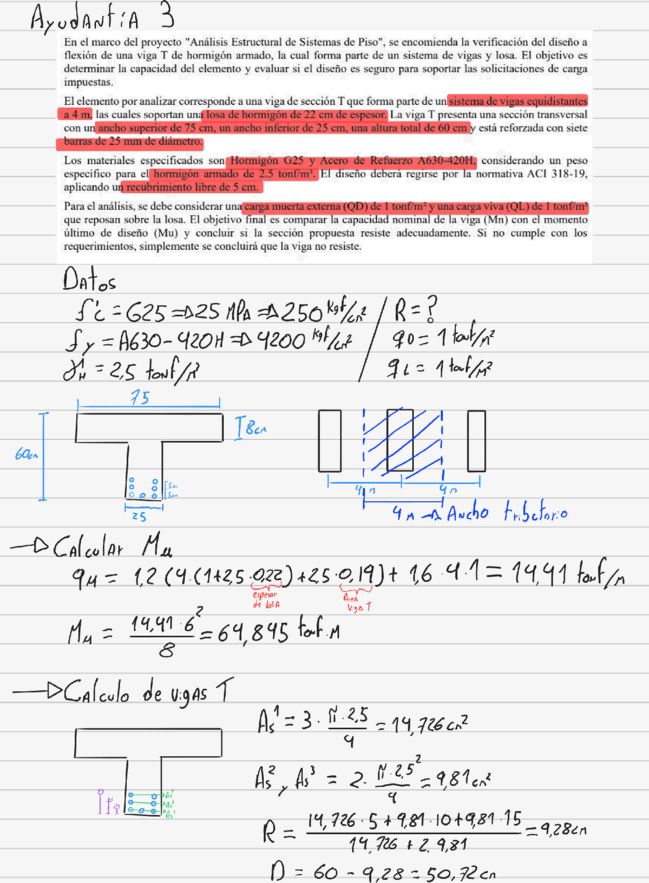 Ayudantía 3
En el marco del proyecto "Análisis Estructural de Sistemas de Piso", se encomienda la verificación del diseño a
flexión de una viga T de hormigón armado, la cual forma parte de un sistema de vigas y losa. El objetivo es
determinar la capacidad del elemento y evaluar si el diseño es seguro para soportar las solicitaciones de carga
impuestas.
El elemento por analizar corresponde a una viga de sección T que forma parte de un sistema de vigas equidistantes
a 4 m, las cuales soportan una losa de hormigón de 22 cm de espesor. La viga T presenta una sección transversal
con un ancho superior de 75 cm, un ancho inferior de 25 cm, una altura total de 60 cm y está reforzada con siete
barras de 25 mm de diámetro.
Los materiales especificados son Hormigón G25 y Acero de Refuerzo A630-420H, considerando un peso
específico para el hormigón armado de 2.5 tonf/m³. El diseño deberá regirse por la normativa ACI 318-19,
aplicando un recubrimiento libre de 5 cm.
Para el análisis, se debe considerar una carga muerta externa (QD) de 1 tonf/m² y una carga viva (QL) de 1 tonf/m²
que reposan sobre la losa. El objetivo final es comparar la capacidad nominal de la viga (Mn) con el momento
último de diseño (Mu) y concluir si la sección propuesta resiste adecuadamente. Si no cumple con los
requerimientos, simplemente se concluirá que la viga no resiste.
Datos
f'c = G25 ⇒ 25 MPa ⇒ 250 kgf/cm² / R = ?
fy = A630-420H ⇒ 4200 kgf/cm² / qD = 1 tonf/m²
γH = 2,5 tonf/m³ / qL = 1 tonf/m²
75
60cm
8cm
5cm
5cm
25
4m 4m
4m → Ancho tributario
→ Calcular Mu
qu = 1,2 (4·(1+2,5·0,22)+2,5·0,19) + 1,6·4·1 = 14,41 tonf/m
espesor de losa
Area viga T
Mu = 14,41·6²/8 = 64,845 tonf·m
→ Calculo de vigas T
As¹ = 3·π·2,5/4 = 14,726 cm²
As², As³ = 2·π·2,5²/4 = 9,81 cm²
R = 14,726·5 + 9,81·10 + 9,81·15 / 14,726 + 2·9,81 = 9,28cm
D = 60 - 9,28 = 50,72 cm